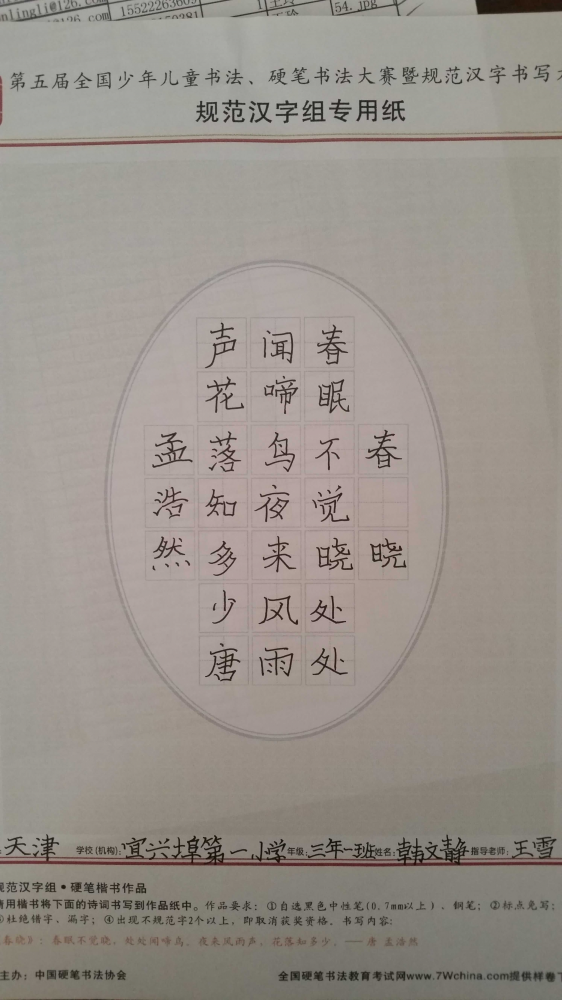 54.jpg
第五届全国少年儿童书法、硬笔书法大赛暨规范汉字书写
规范汉字组专用纸
春晓
春眠不觉晓处处
闻啼鸟夜来风雨
声花落知多少唐
孟浩然
天津 学校(机构): 宜兴埠第一小学 年级: 三年一班 姓名: 韩文静 指导老师: 王雪
规范汉字组•硬笔楷书作品
请用楷书将下面的诗词书写到作品纸中。作品要求：①自选黑色中性笔(0.7mm以上)、钢笔；②标点免写；
③杜绝错字、漏字；④出现不规范字2个以上，即取消获奖资格。书写内容：
《春晓》：春眠不觉晓，处处闻啼鸟。夜来风雨声，花落知多少。——唐 孟浩然
主办：中国硬笔书法协会 全国硬笔书法教育考试网www.7Wchina.com提供样卷下